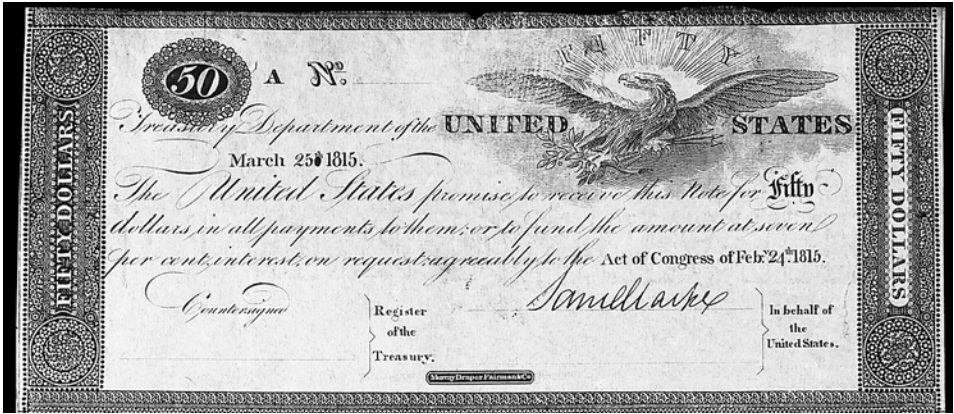 FIFTY
50 A No.
Treasury Department of the UNITED STATES
March 25th 1815.
The United States promise to receive this Note for Fifty
dollars in all payments to them; or to fund the amount at seven
per cent. interest, on request: agreeably to the Act of Congress of Feby. 24th. 1815.
Countersigned
Register
of the
Treasury.
In behalf of
the
United States.
Murray Draper Fairman & Co
FIFTY DOLLARS
FIFTY DOLLARS